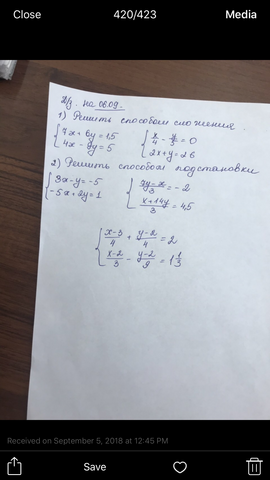 Close 420/423 Media
Д/з. на 06.09.
1) Решить способом сложения.
{7x + 6y = 15
4x - 9y = 5
{x/4 - y/3 = 0
2x + y = 26
2) Решить способом подстановки
{3x - y = -5
-5x + 2y = 1
x + 14y/3 = 4,5
{x-3/4 + y-2/4 = 2
x-2/3 - y-2/9 = 1 1/3
Received on September 5, 2018 at 12:45 PM
Save